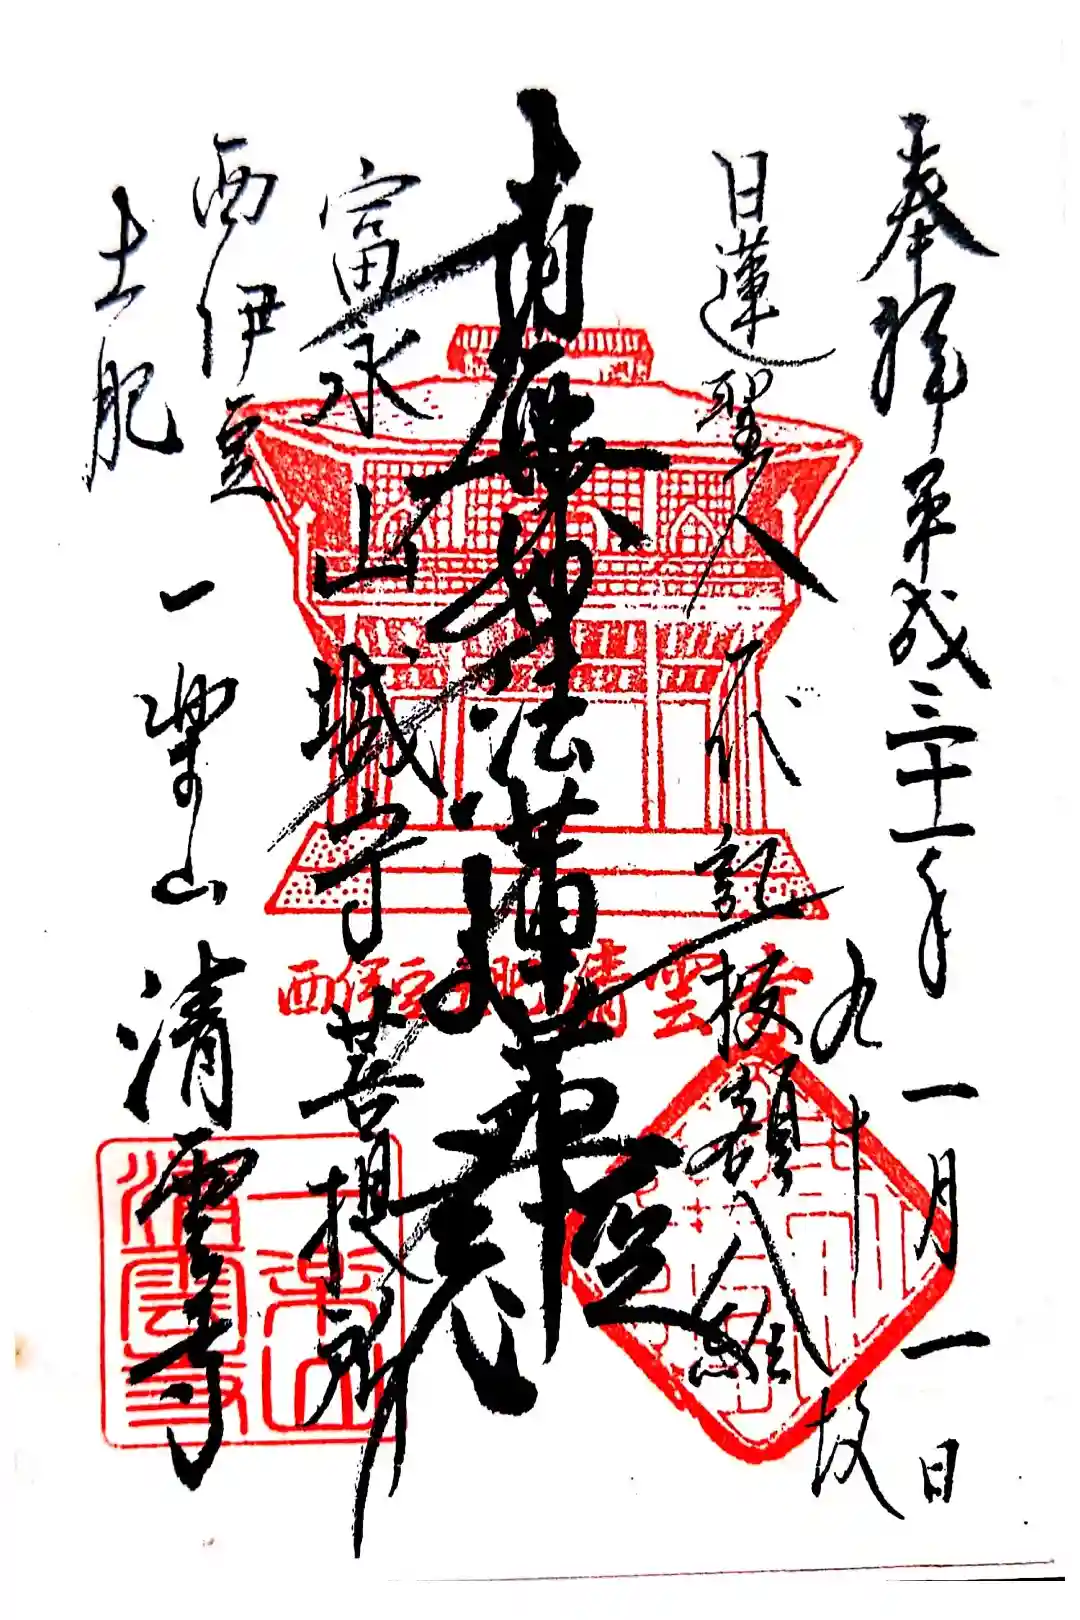 奉拝 平成三十一年 一月一日
九十 枚
日蓮聖人一代記 板額
南無妙法蓮華
富永山城守菩提所
西伊豆
土肥
一楽山 清雲寺
西伊豆土肥清雲寺
一楽山
清雲寺